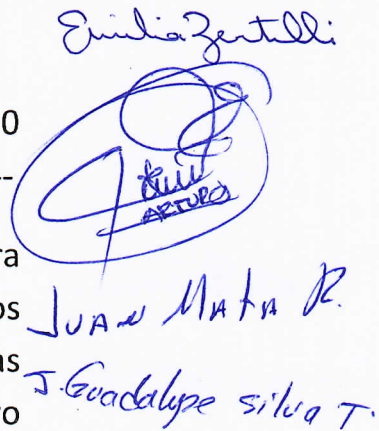 Emilia Zentilli
0
--
ARTURO
ra
os Juan Mata R.
as
J. Guadalupe Silva T.
ro